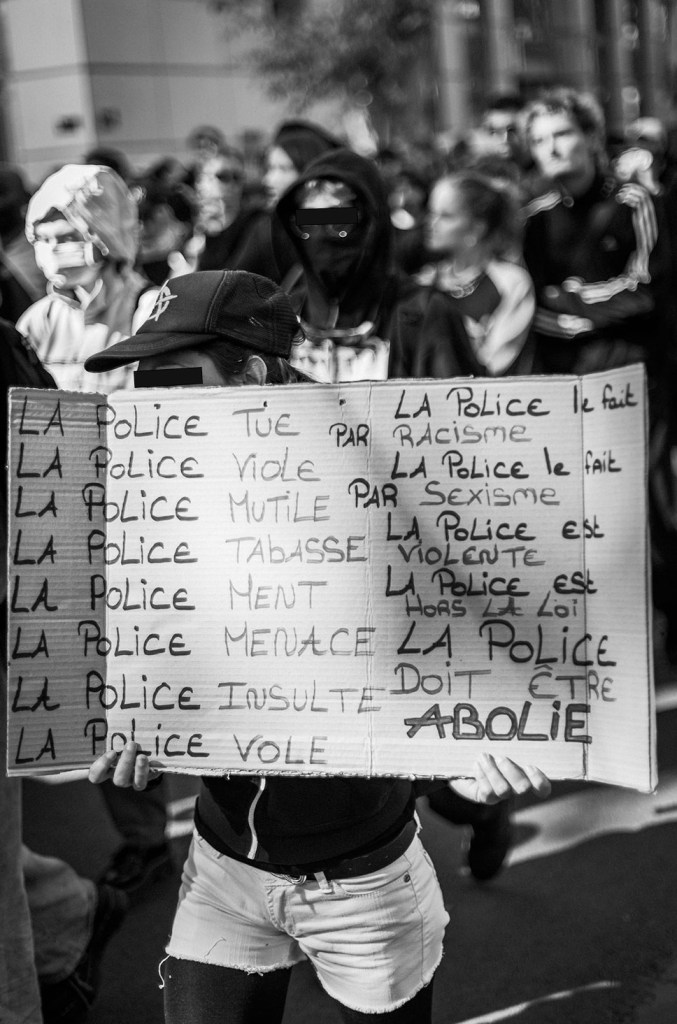 LA POLICE TUE
LA POLICE VIOLE
LA POLICE MUTILE
LA POLICE TABASSE
LA POLICE MENT
LA POLICE MENACE
LA POLICE INSULTE
LA POLICE VOLE
LA POLICE le fait
PAR RACISME
LA POLICE le fait
PAR SEXISME
LA POLICE EST
VIOLENTE
LA POLICE EST
HORS LA LOI
LA POLICE
DOIT ÊTRE
ABOLIE